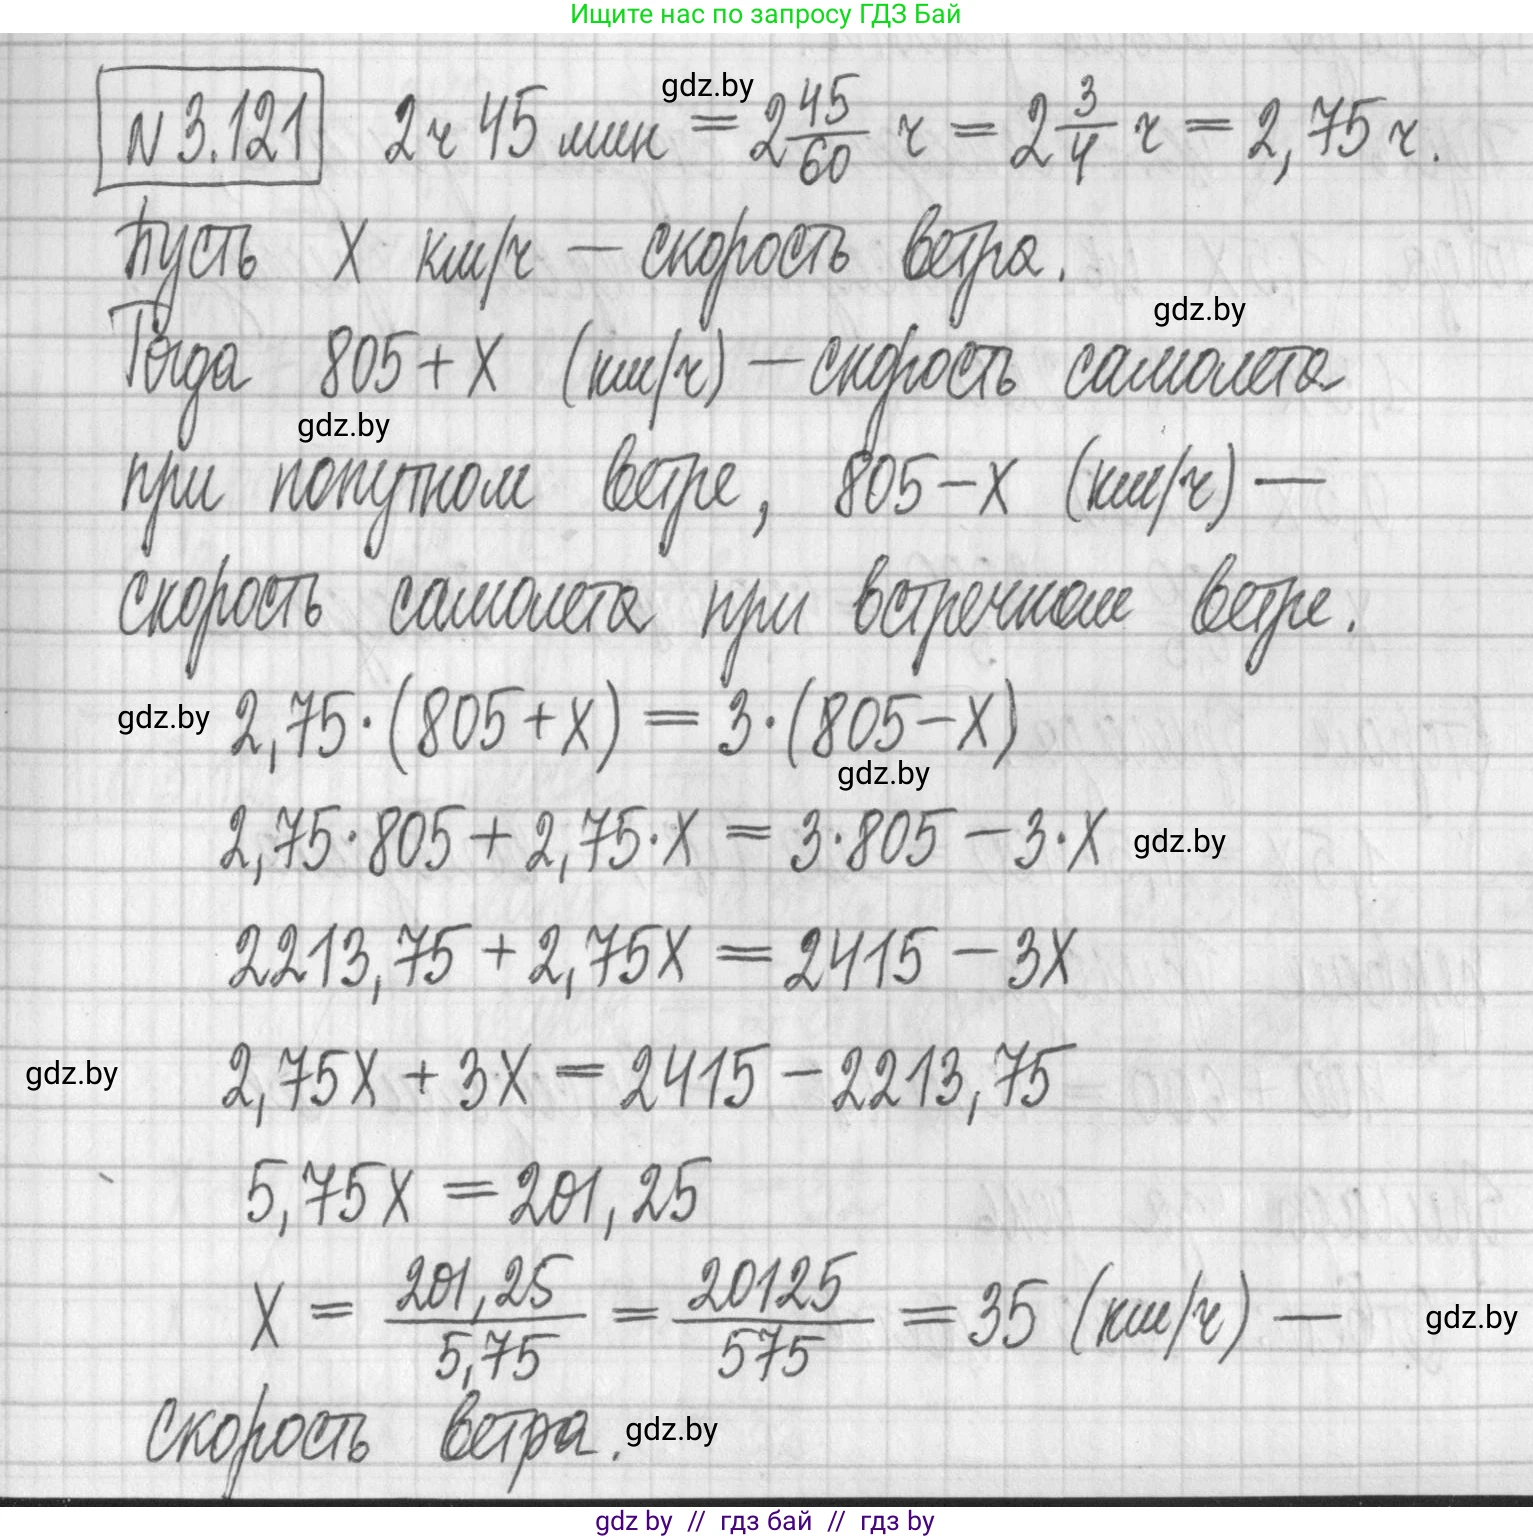 Ищите нас по запросу ГДЗ Бай
gdz.by
N 3.121 2ч 45 мин = 2 45/60 ч = 2 3/4 ч = 2,75 ч.
Пусть x км/ч – скорость ветра.
gdz.by
Тогда 805 + x (км/ч) – скорость самолета
gdz.by
при попутном ветре, 805 – x (км/ч) –
скорость самолета при встречном ветре.
gdz.by 2,75 · (805 + x) = 3 · (805 – x)
gdz.by
2,75 · 805 + 2,75 · x = 3 · 805 – 3 · x gdz.by
2213,75 + 2,75x = 2415 – 3x
gdz.by 2,75x + 3x = 2415 – 2213,75
5,75x = 201,25
x = 201,25/5,75 = 20125/575 = 35 (км/ч) – gdz.by
скорость ветра. gdz.by
gdz by // гдз бай // гдз by